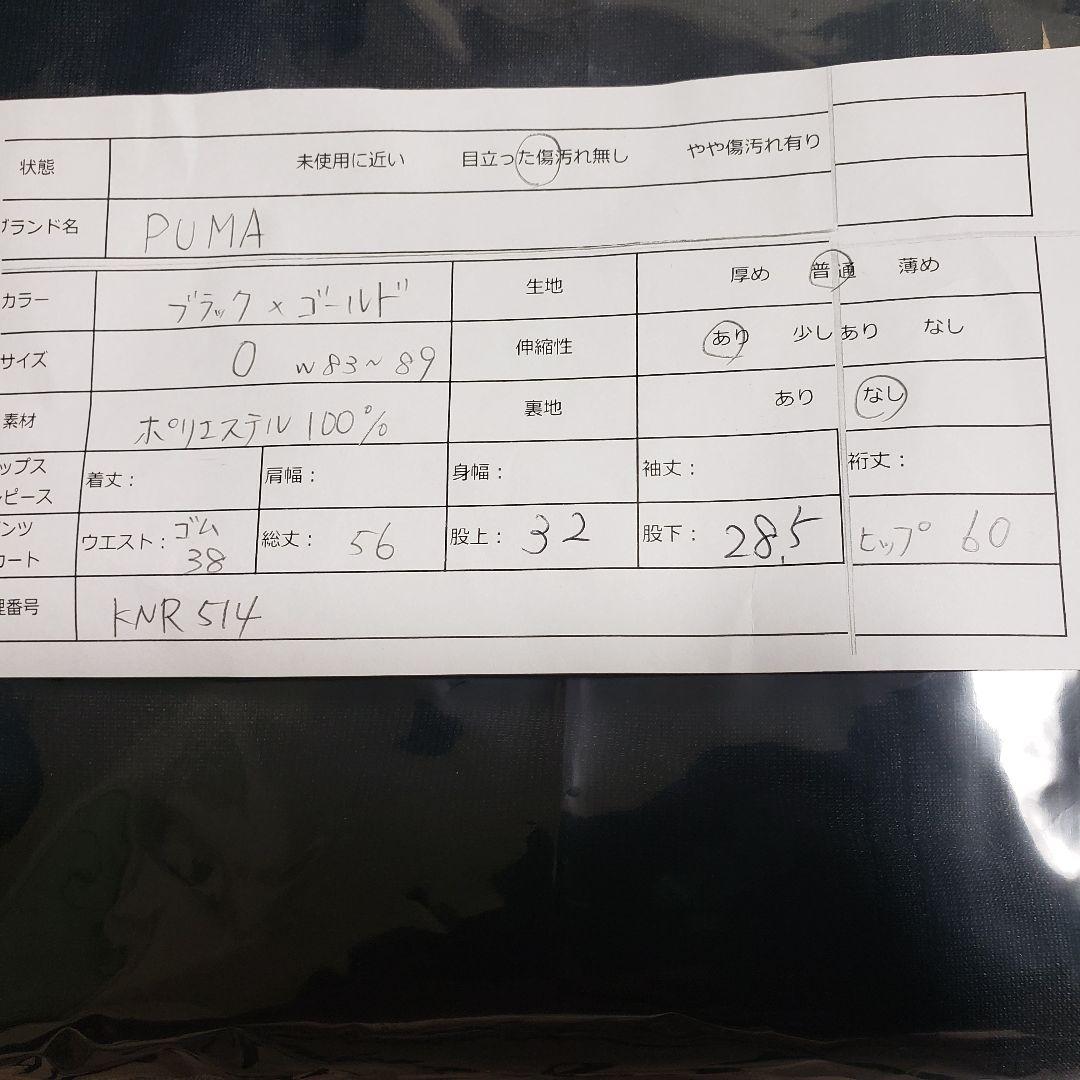 状態 未使用に近い 目立った傷汚れ無し やや傷汚れ有り
ブランド名 PUMA
カラー ブラック×ゴールド 生地 厚め 普通 薄め
サイズ O W83~89 伸縮性 あり 少しあり なし
素材 ポリエステル100% 裏地 あり なし
ップス
ピース
着丈: 肩幅: 身幅: 袖丈: 裄丈:
ンツ
カート
ウエスト:ゴム 38 総丈: 56 股上: 32 股下: 28.5 ヒップ 60
理番号 KNR514